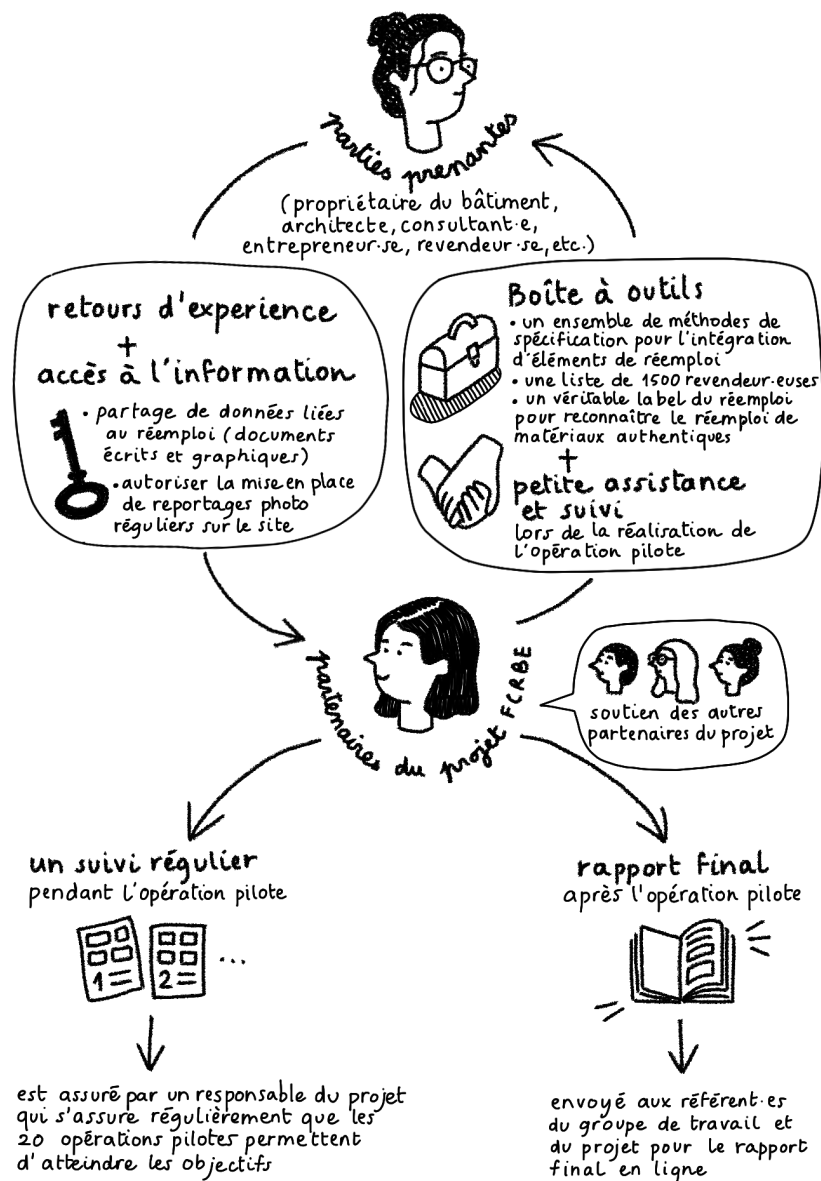 parties prenantes
(propriétaire du bâtiment,
architecte, consultant·e,
entrepreneur·se, revendeur·se, etc.)
retours d'experience
+
accès à l'information
• partage de données liées
au réemploi (documents
écrits et graphiques)
• autoriser la mise en place
de reportages photo
réguliers sur le site
Boîte à outils
• un ensemble de méthodes de
spécification pour l'intégration
d'éléments de réemploi
• une liste de 1500 revendeur·euses
• un véritable label du réemploi
pour reconnaître le réemploi de
matériaux authentiques
+
petite assistance
et suivi
lors de la réalisation de
l'opération pilote
partenaires du projet FCRBE
soutien des autres
partenaires du projet
un suivi régulier
pendant l'opération pilote
1 2 ...
est assuré par un responsable du projet
qui s'assure régulièrement que les
20 opérations pilotes permettent
d'atteindre les objectifs
rapport final
après l'opération pilote
envoyé aux référent·es
du groupe de travail et
du projet pour le rapport
final en ligne